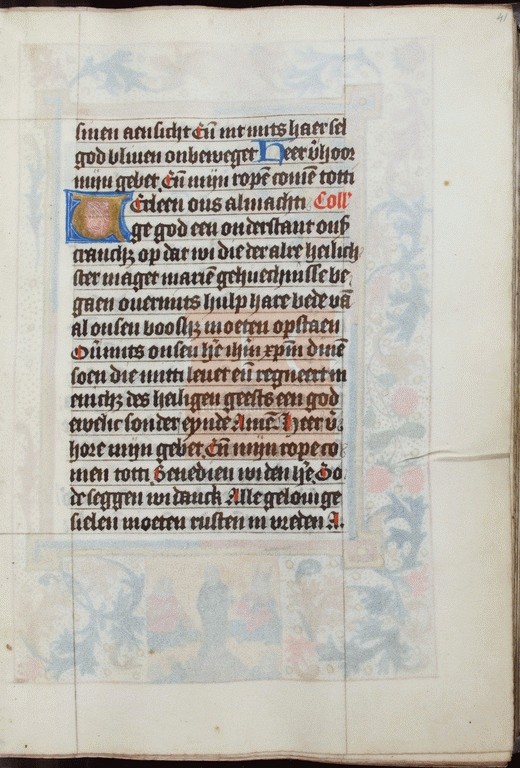 41
sinen aensicht En̄ int mits haer sel
god bliuen onbeweget Heer v̄hoor
mijn gebet. En̄ mijn ropē comē totti
Erleen ons almachti Coll'
ge god een onderstant onß
cranchz op dat wi die der alre heilich
ster maget mariē gehuechnisse be
gaen ouermits hulp hare bede vā
al onsen boosh; moeten opstaen
Oūmits onsen hē ihm̄ xpm̄ dinē
soen die mitti leuet en̄ regneert in
enich; des heiligen geests een god
ewelic sonder eynde Amē. Heer v̄
hore mijn gebet. En̄ mijn rope co
men totti Benedien wi den hē. Go
de seggen wi danck Alle gelouige
sielen moeten rusten in vreden A.